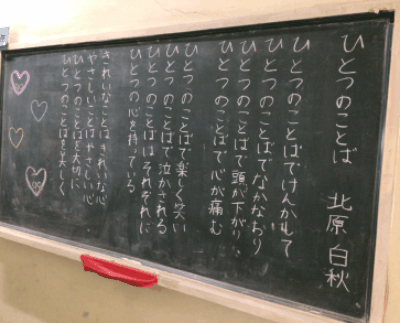 ひとつのことば　北原 白秋
ひとつのことばでけんかして
ひとつのことばでなかなおり
ひとつのことばで頭が下がり
ひとつのことばで心が痛む
ひとつのことばで楽しく笑い
ひとつのことばで泣かされる
ひとつのことばはそれぞれに
ひとつの心を持っている
きれいなことばはきれいな心
やさしいことばはやさしい心
ひとつのことばを大切に
ひとつのことばを美しく